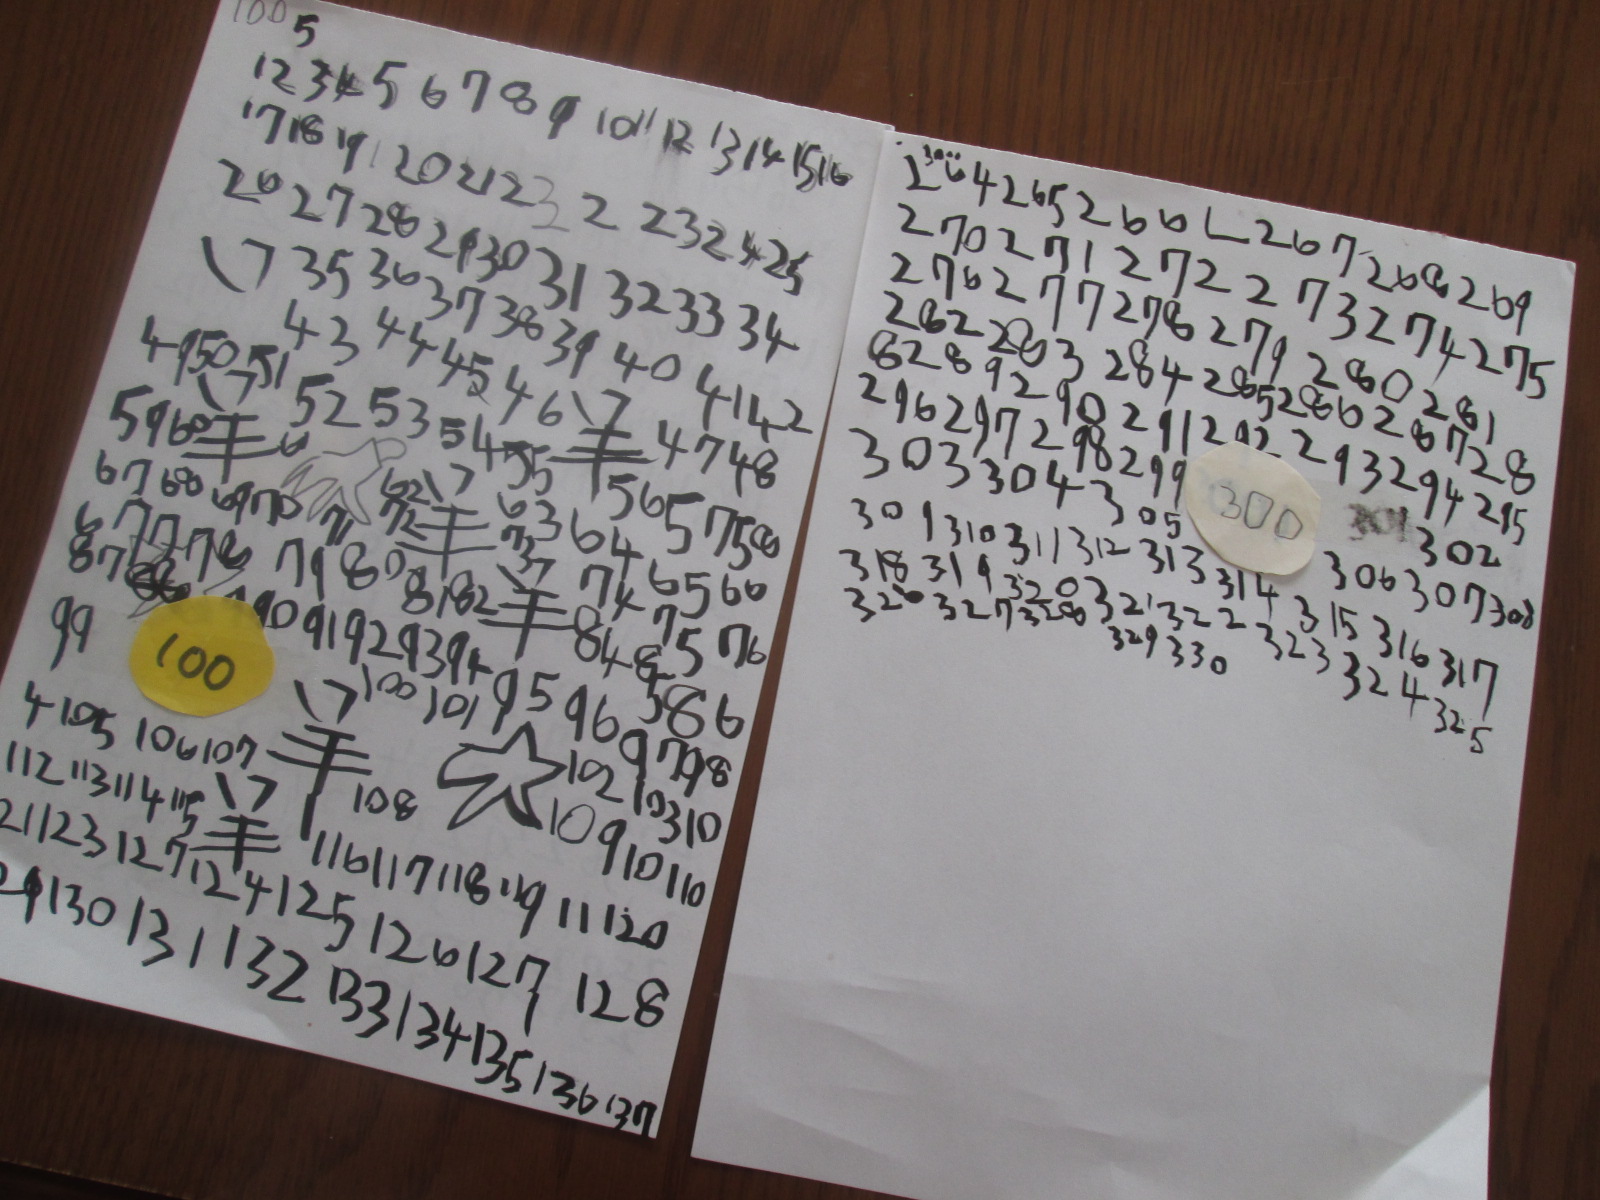 100 5
1 2 3 4 5 6 7 8 9 10 11 12 13 14 15 16
17 18 19 20 21 2 3 2 2 23 24 25
26 27 28 29 30 31 32 33 34
35 36 37 38 39 40 41 42
43 44 45 46 羊 47 48
49 50 51 52 53 54 55 56 57 58
59 60 羊 6 62 羊 63 64 65 66
67 68 69 70 71 72 73 74 75 76
6 77 78 79 80 81 82 羊 84 85 86
87 88 90 91 92 93 94 95 96 97 98
99 100 羊 100 101 102 103 10
4 105 106 107 108 109 10 110
112 113 114 115 羊 116 117 118 119 11 120
21 123 127 124 125 126 127 128
29 130 131 132 133 134 135 136 137
2 300 6 4 265 266 2 67 268 269
270 271 272 273 274 275
276 277 278 279 280 281
282 283 284 285 286 287 28
8 289 290 291 292 293 294 295
296 297 298 299 300 301 302
303 304 305 306 307 308
309 310 311 312 313 314 315 316 317
318 319 320 321 322 323 324 325
326 327 328 329 330